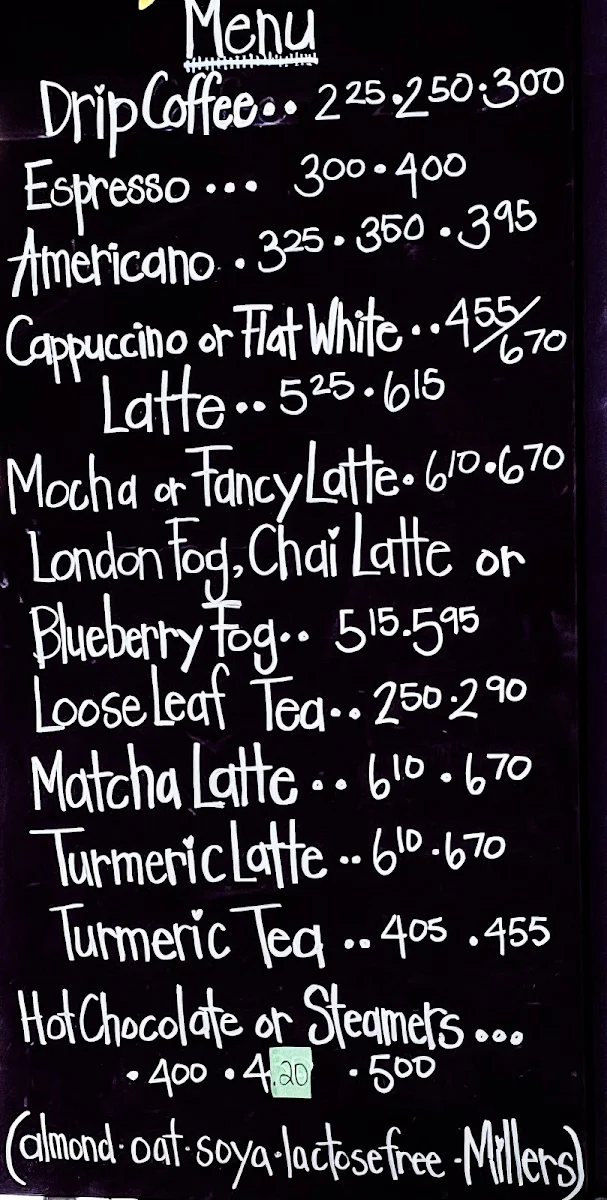 Menu
Drip Coffee.. 225.250.300
Espresso ... 300.400
Americano . 325.350.395
Cappuccino or Flat White .. 455/670
Latte .. 525.615
Mocha or Fancy Latte. 610.670
London Fog, Chai Latte or
Blueberry Fog.. 515.595
Loose Leaf Tea.. 250.290
Matcha Latte .. 610.670
Turmeric Latte .. 610.670
Turmeric Tea .. 405.455
Hot Chocolate or Steamers ...
.400 .4.20 .500
(almond.oat.soya.lactose free.Millers)